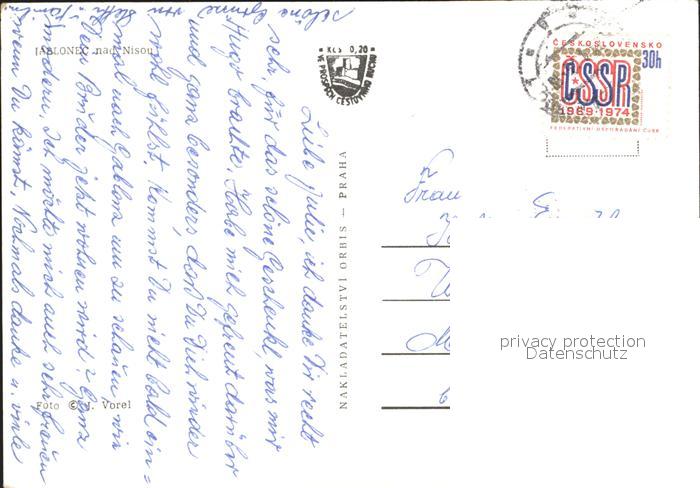 JABLONEC nad Nisou
Foto © J. Vorel
NAKLADATELSTVÍ ORBIS — PRAHA
KČS 0,20
VE PROSPĚCH CESTOVNÍHO RUCHU
ČESKOSLOVENSKO
30h
ČSSR
1969-1974
FEDERATIVNÍ USPOŘÁDÁNÍ ČSSR
Frau
privacy protection
Datenschutz
Liebe Julie, ich danke Dir recht
sehr, für das schöne Geschenk, was mir
Hugo brachte. Habe mich gefreut darüber
und ganz besonders daß Du Dich wieder
wohl fühlst. Kommst Du nicht bald ein=
mal nach Gablonz um zu schauen wie
Dein Bruder jetzt wohnen wird?
modern. Ich möchte mich auch sehr freuen
wenn Du kämst. Nochmals danke u. viele
schöne